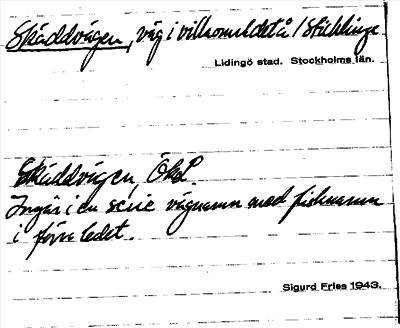 Skäddvägen, väg i villaområdet å / Sticklinge
Lidingö stad. Stockholms län.
Skäddvägen, Ökbl
Ingår i en serie vägnamn med fisknamn
i förra ledet.
Sigurd Fries 1943.